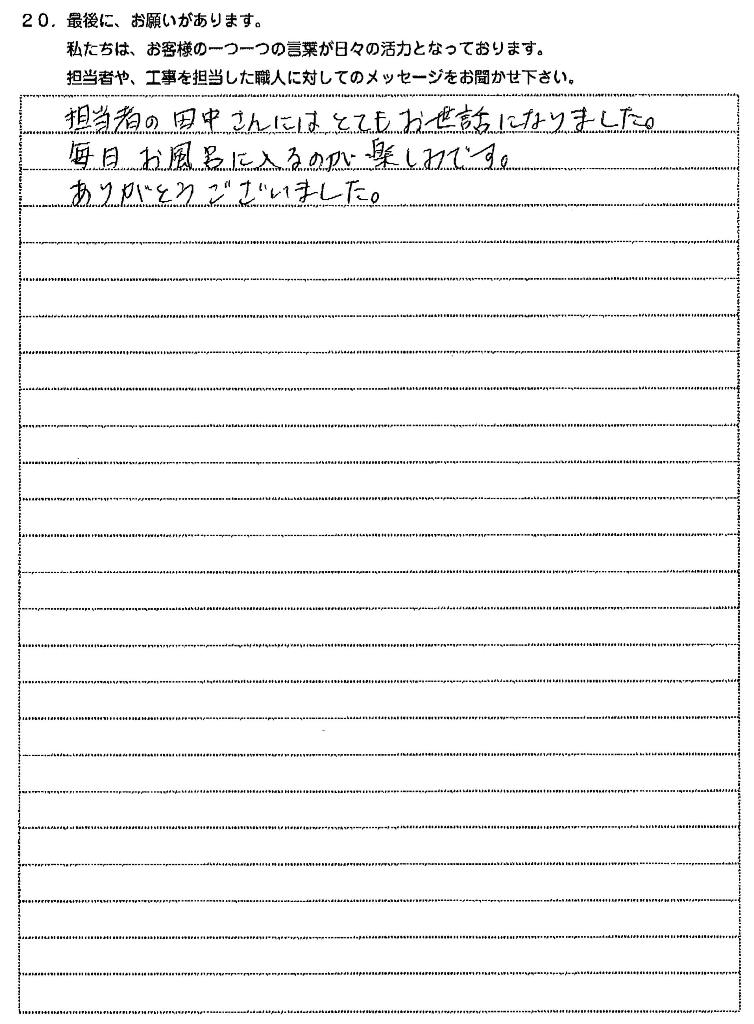 20. 最後に、お願いがあります。
私たちは、お客様の一つ一つの言葉が日々の活力となっております。
担当者や、工事を担当した職人に対してのメッセージをお聞かせ下さい。
担当者の田中さんにはとてもお世話になりました。
毎日お風呂に入るのが楽しみです。
ありがとうございました。